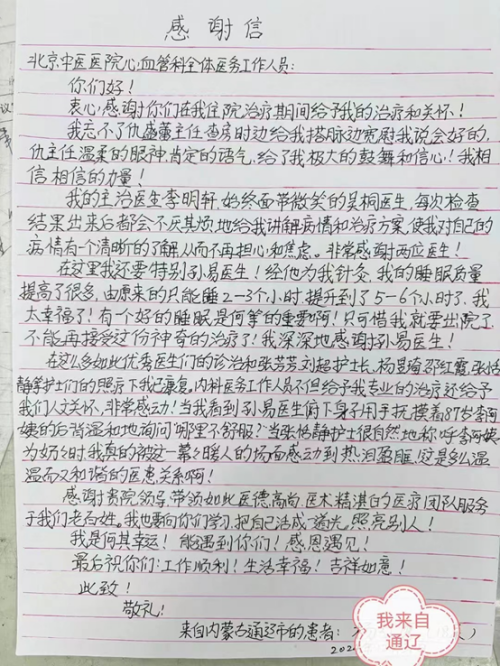 感谢信
北京中医医院心血管科全体医务工作人员:
你们好!
衷心感谢你们在我住院治疗期间给予我的治疗和关怀!
我忘不了仇盛蕾主任查房时边给我搭脉边宽慰我说会好的,
仇主任温柔的眼神,肯定的语气,给了我极大的鼓舞和信心!我相
信相信的力量!
我的主治医生李明轩,始终面带微笑的吴桐医生,每次检查
结果出来后都会不厌其烦地给我讲解病情和治疗方案,使我对自己的
病情有个清晰的了解,从而不再担心和焦虑。非常感谢两位医生!
在这里我还要特别孙易医生!经他为我针灸,我的睡眠质量
提高了很多,由原来的只能睡2-3个小时,提升到了5-6个小时了,我
太幸福了!有个好的睡眠是何等的重要啊!只可惜我就要出院了
不能再接受这份神奇的治疗了!我深深地感谢孙易医生!
在这么多如此优秀医生们的诊治和张芳芳刘超护士长,杨昱琦邵红霞,张恬
静等护士们的照疗下我已康复,内科医务工作人员不但给予我专业的治疗还给予
我们人文关怀,非常感动!当我看到孙易医生俯下身子用手抚摸着87岁李阿
姨的后背温和地询问“哪里不舒服?”当张恬静护士很自然地称呼李阿姨
为奶奶时我真的被这一幕幕暖人的场面感动到热泪盈眶,这是多么温
温而又和谐的医患关系啊!
感谢贵院领导,带领如此医德高尚,医术精湛的医疗团队服务
于我们老百姓。我也要向你们学习,把自己活成一道光,照亮别人!
我是何其幸运!能遇到你们!感恩遇见!
最后祝你们:工作顺利!生活幸福!吉祥如意!
此致!
敬礼!
来自内蒙古通辽市的患者:
202
我来自
通辽